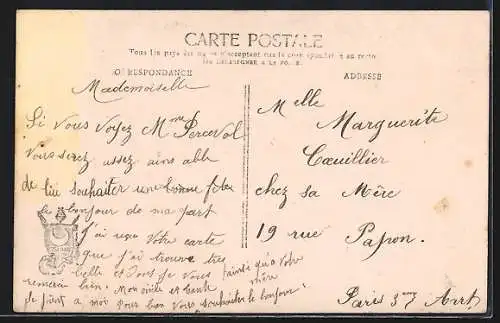 CARTE POSTALE
Tous les pays étrangers n'acceptent pas la correspondance au recto
CORRESPONDANCE
ADRESSE
Mademoiselle
Si vous voyez Mme Perceval
vous serez assez aimable
de lui souhaiter une bonne fête
le bonjour de ma part
J'ai reçu votre carte
que j'ai trouvé très
belle et dont je vous
remercie bien. Mon oncle et tante
se joint a moi pour vous souhaiter le bonjour
ainsi qu'a votre
mère
Melle
Marguerite
Caeuillier
chez sa Mère
19 rue Papon.
Paris 3eme Arrt